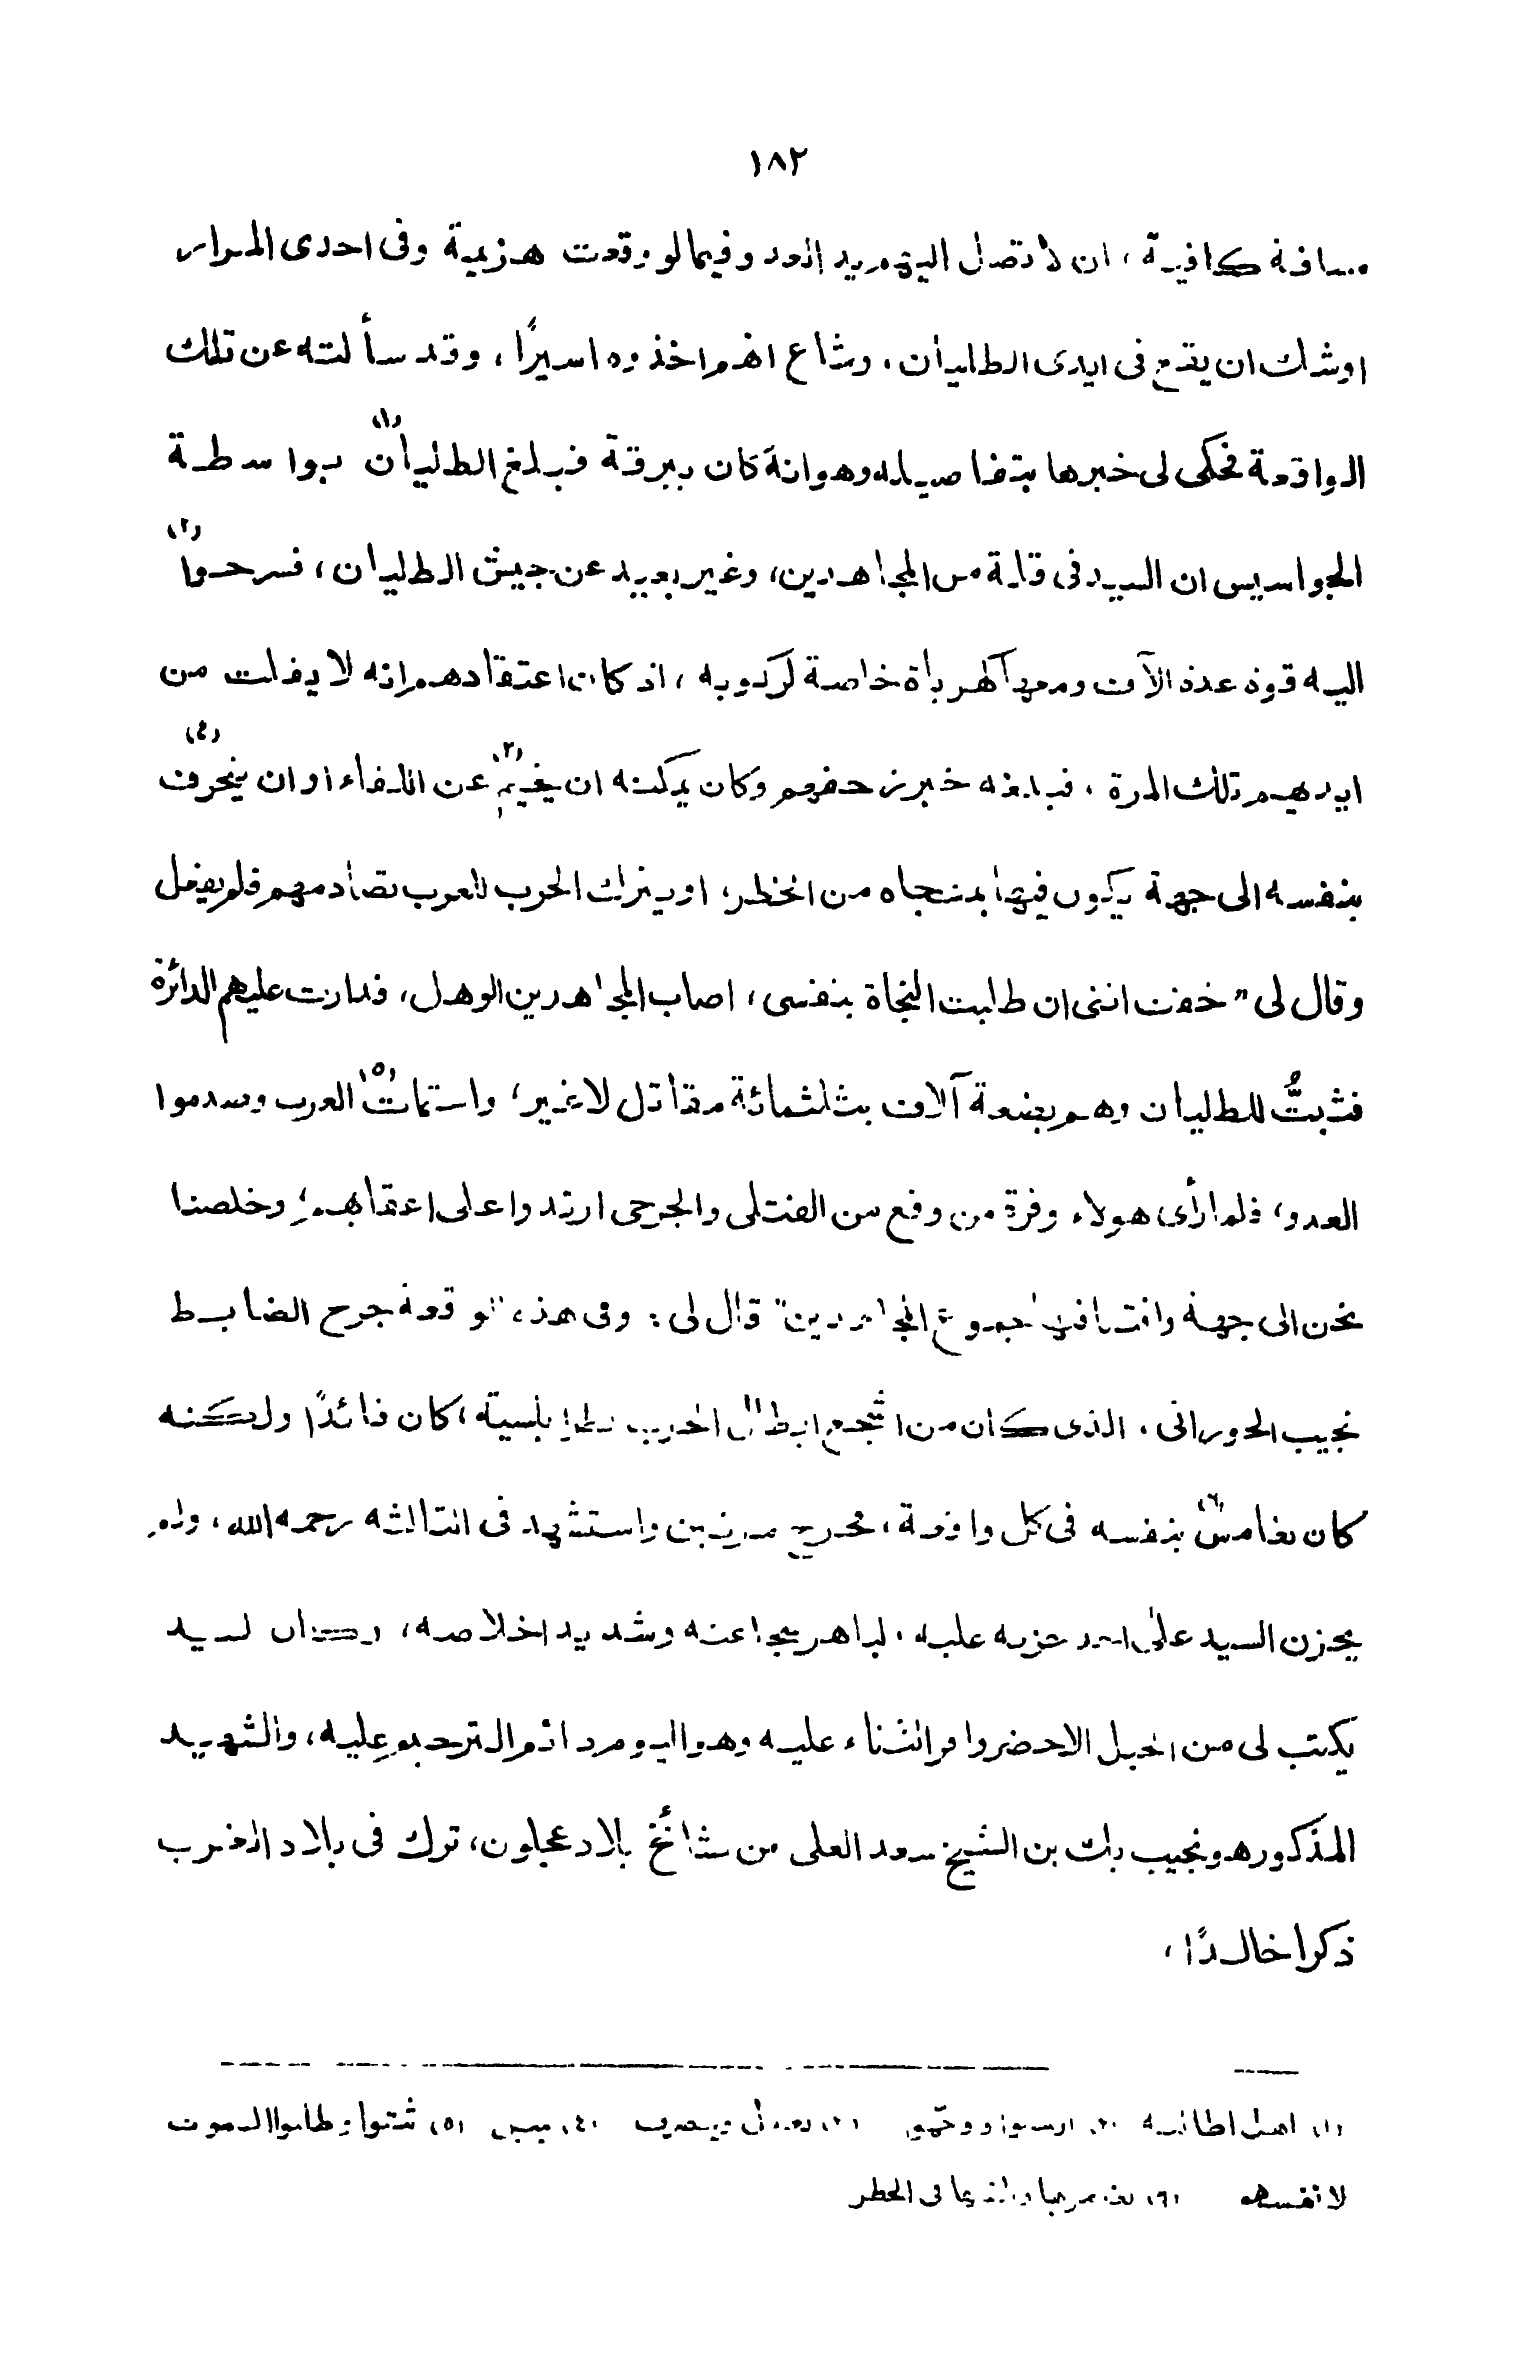 ١٨٢
مسافة كافية، ان لا تصل اليهم يد العدو فيما لو وقعت هزيمة وفى احدى المرار
اوشك ان يقع فى ايدى الطليان، وشاع انهم اخذوه اسيرًا، وقد سألته عن تلك
الواقعة فحكى لى خبرها بتفاصيله وهو انه كان ببرقة فبلغ الطليان(١) بواسطة
الجواسيس ان السيد فى قلة من المجاهدين، وغير بعيد عن جيش الطليان، فسرحوا(٢)
اليه قوة عدة الآف ومعها كهرباة خاصة لركوبه، اذ كان اعتقادهم انه لا يفلت من
ايديهم تلك المرة، فبلغه خبر زحفهم وكان يمكنه ان يخيم(٣) عن اللقاء او ان ينحرف(٤)
بنفسه الى جهة يكون فيها بمنجاه من الخطر، او يترك الحرب للعرب تصادمهم فلم يفعل
وقال لى "خفت اننى ان طلبت النجاة بنفسى، اصاب المجاهدين الوهل، فدارت عليهم الدائرة
فثبتُّ للطليان وهم بضعة آلاف بثلثمائة مقاتل لا غير، واستمات(٥) العرب وصدموا
العدو، فلما رأى هولاء وفرة من وقع من القتلى والجرحى ارتدوا على اعقابهم، وخلصنا
نحن الى جهة وافتنا فيها جموع المجاهدين" قال لى: وفى هذه الوقعة جرح الضابط
نجيب الحورانى، الذى كان من اشجع ابطال الحرب الطرابلسية، كان قائدًا ولكنه
كان يغامس(٦) بنفسه فى كل واقعة، فجرح مرتين واستشهد فى الثالثة رحمه الله، ولم
يحزن السيد على احد حزنه عليه، لباهر شجاعته وشديد اخلاصه، وكان السيد
يكتب لى من الجبل الاخضر وافر الثناء عليه وهو اليوم دائم الترحم عليه، والشهيد
المذكور هو نجيب بك بن الشيخ سعد العلى من مشائخ بلاد عجلون، ترك فى بلاد الغرب
ذكرا خالدًا،
(١) اهل اطاليه (٢) ارسلوا ووجّهوا (٣) يعدل وينصرف (٤) يميل (٥) ثبتوا وطلبوا الموت
لانفسهم (٦) يلقيها فى الخطر